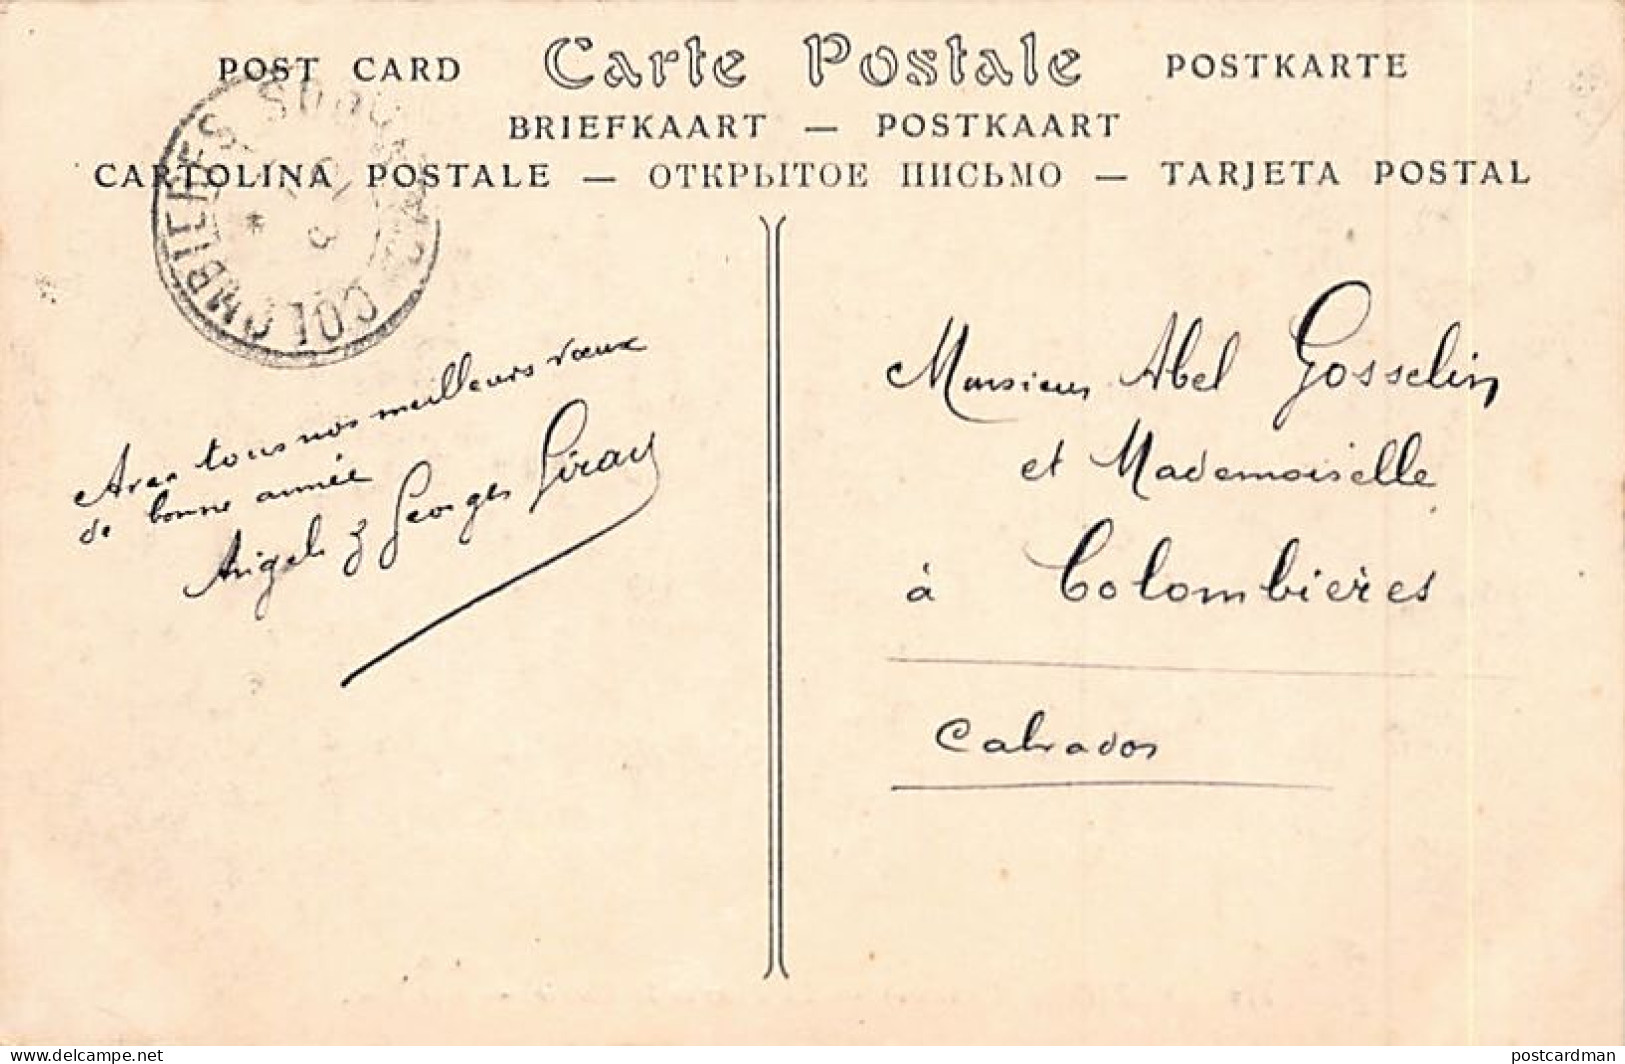 POST CARD Carte Postale POSTKARTE
BRIEFKAART — POSTKAART
CARTOLINA POSTALE — ОТКРЫТОЕ ПИСЬМО — TARJETA POSTAL
COLOMBIERES
Avec tous nos meilleurs vœux
de bonne année
Angèle & Georges
Monsieur Abel Gosselin
et Mademoiselle
à Colombières
Calvados
postcardman